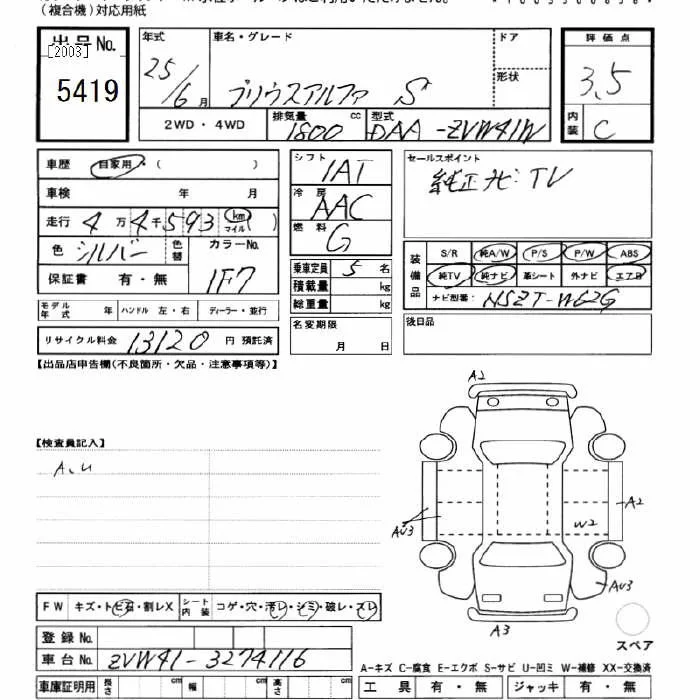 (複合機)対応用紙
出品 No.
[2003]
5419
年式
25/6月
車名・グレード
プリウスアルファ S
ドア
形状
評価点
3.5
内装
C
2WD・4WD
排気量
1800 cc
型式
DAA-ZVW41W
車歴 自家用・( )
車検 年 月
走行 4万4千593 km マイル( )
色 シルバー
色替
カラーNo.
1F7
保証書 有・無
モデル年式 年 ハンドル 左・右 ディーラー・並行
リサイクル料金 13120 円 預託済
シフト
IAT
冷房
AAC
燃料
G
乗車定員 5 名
積載量 kg
総重量 kg
名変期限
月 日
セールスポイント
純正ナビ:TV
装備品
S/R 純A/W P/S P/W ABS
純TV 純ナビ 革シート 外ナビ エアB
ナビ型番: NSZT-W62G
後日品
【出品店申告欄(不良箇所・欠品・注意事項等)】
【検査員記入】
A、U
A2
AU3
A2
W2
AU3
A3
スペア
FW キズ・トビ石・割レX
シート内装 コゲ・穴・汚レ・シミ・破レ・スレ
登録 No.
車台 No. ZVW41-3274116
車庫証明用 長さ cm 幅 cm 高さ cm
A-キズ C-腐食 E-エクボ S-サビ U-凹ミ W-補修 XX-交換済
工具 有・無 ジャッキ 有・無